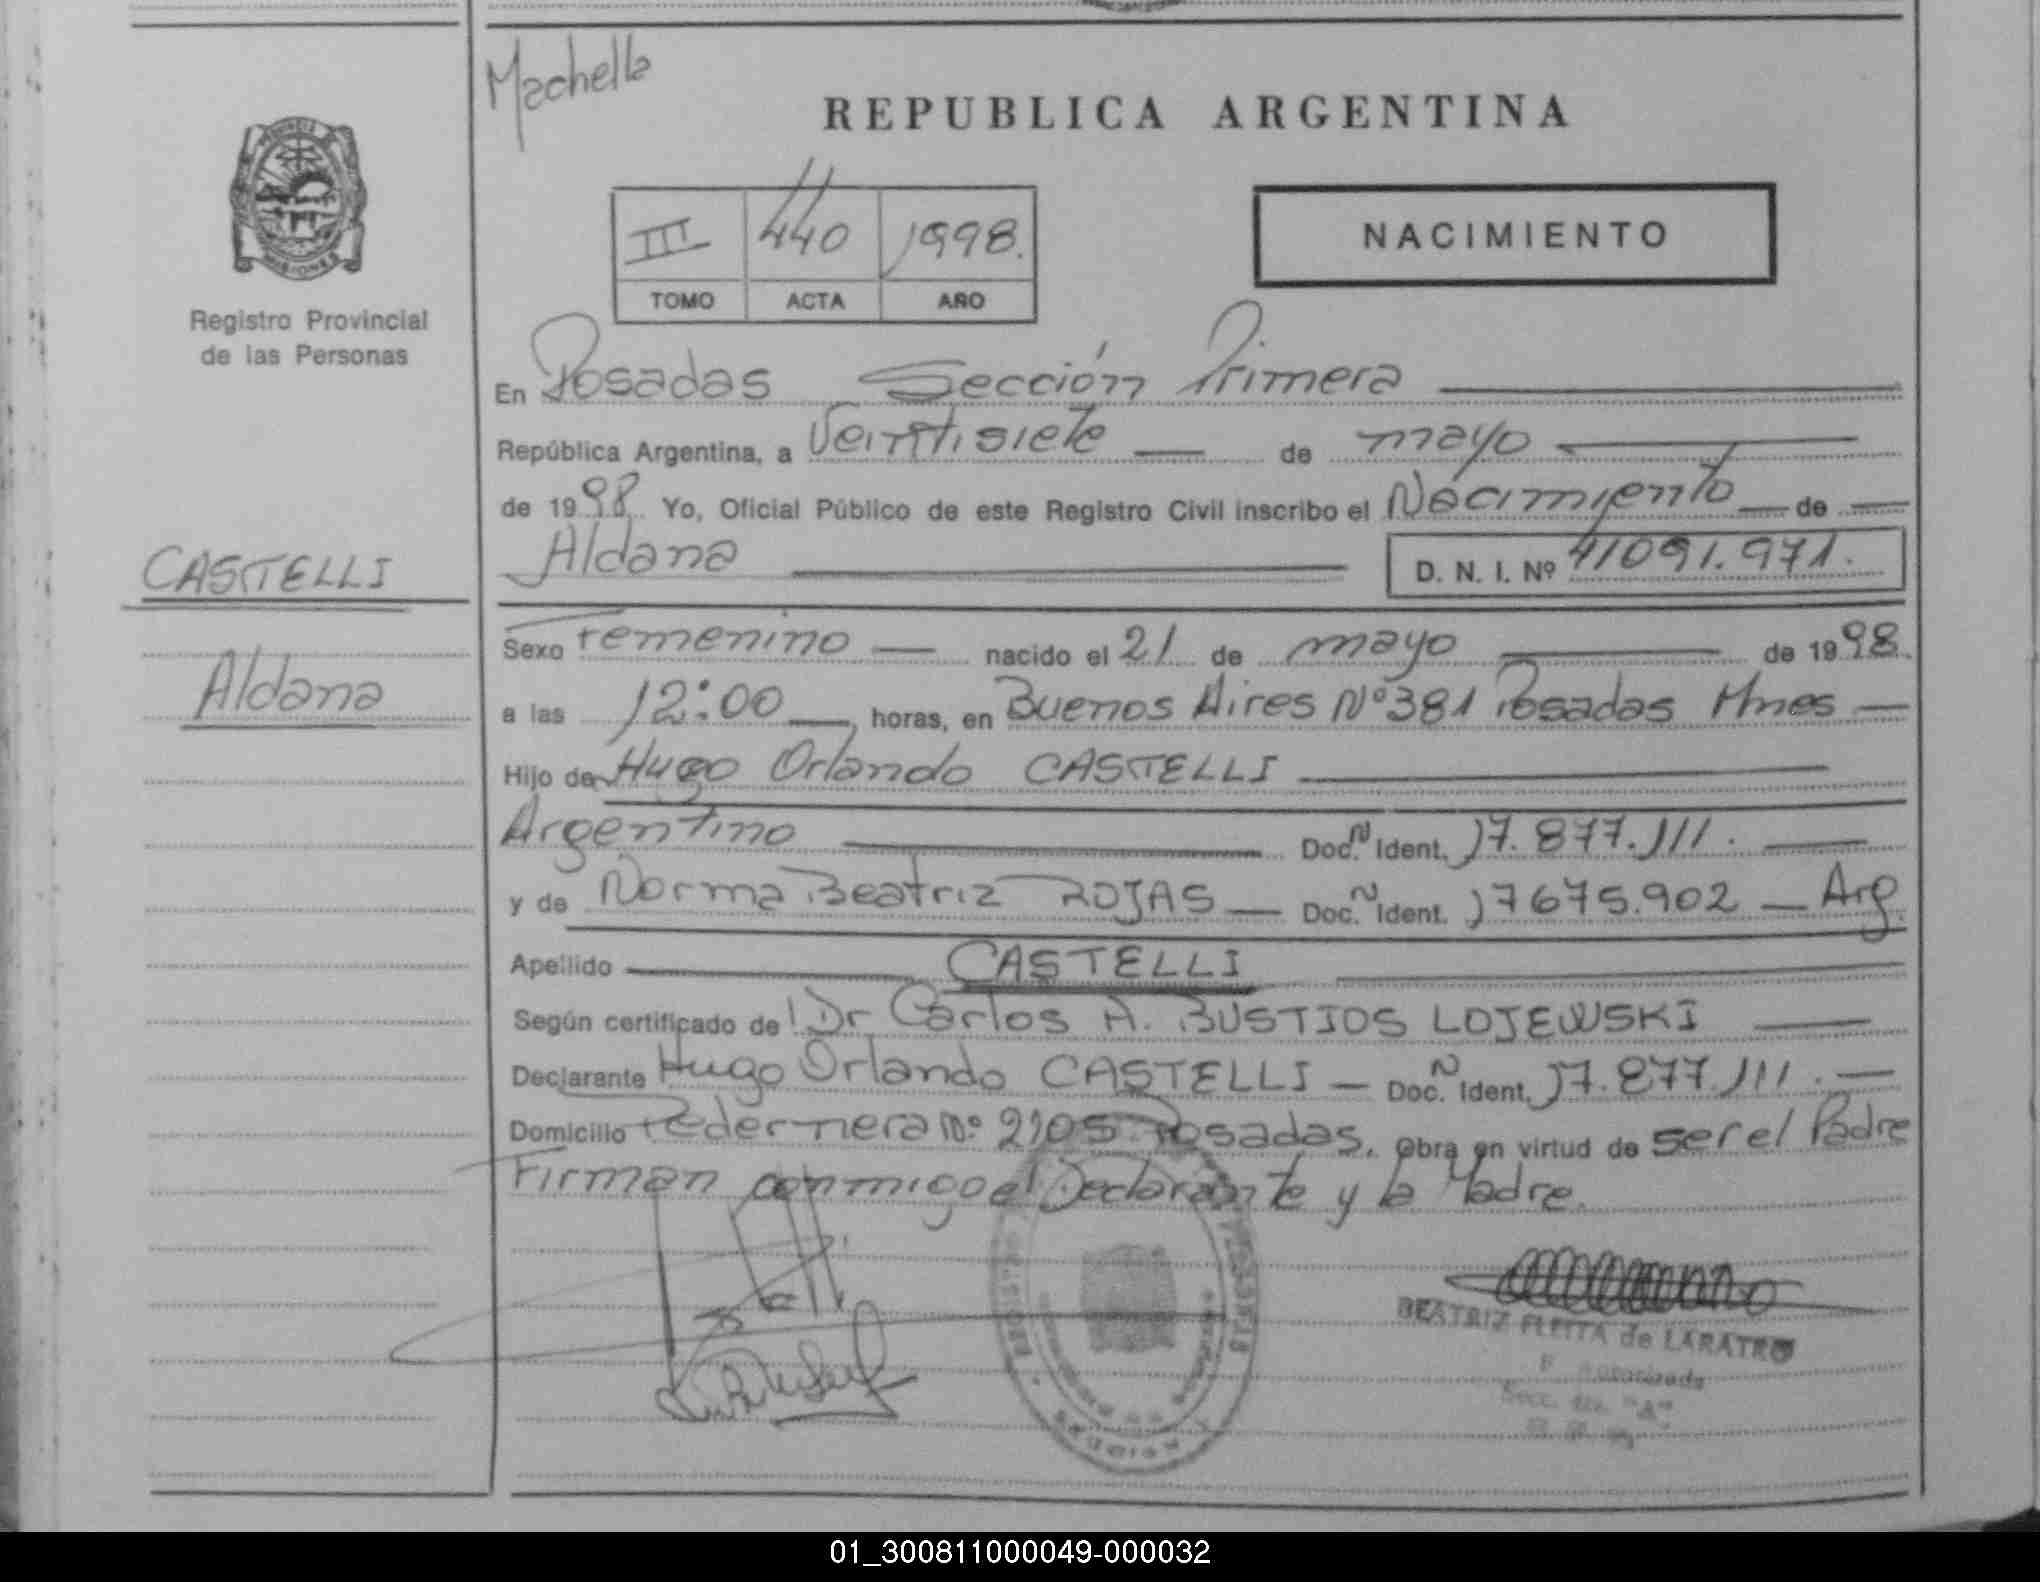 Machella
REPUBLICA ARGENTINA
III 440 1998.
TOMO ACTA AÑO
NACIMIENTO
MISIONES
Registro Provincial
de las Personas
En Posadas Sección Primera
República Argentina, a Veintisiete de mayo
de 1998. Yo, Oficial Público de este Registro Civil inscribo el Nacimiento de
Aldana D. N. I. Nº 41091.971.
CASTELLI
Aldana
Sexo Femenino nacido el 21 de mayo de 1998.
a las 12:00 horas, en Buenos Aires Nº 381 Posadas Mnes
Hijo de Hugo Orlando CASTELLI
Argentino Doc. N Ident. 17.877.111.
y de Norma Beatriz ROJAS Doc. N Ident. 17675.902 Arg.
Apellido CASTELLI
Según certificado de Dr Carlos A. BUSTIOS LOJEWSKI
Declarante Hugo Orlando CASTELLI Doc. N Ident. 17.877.111.
Domicilio Pedernera Nº 2105 Posadas. obra en virtud de ser el Padre
Firman conmigo el Declarante y la Madre.
BEATRIZ FLEITA de LARATRO
Autorizada
Secc. "A"
01_300811000049-000032